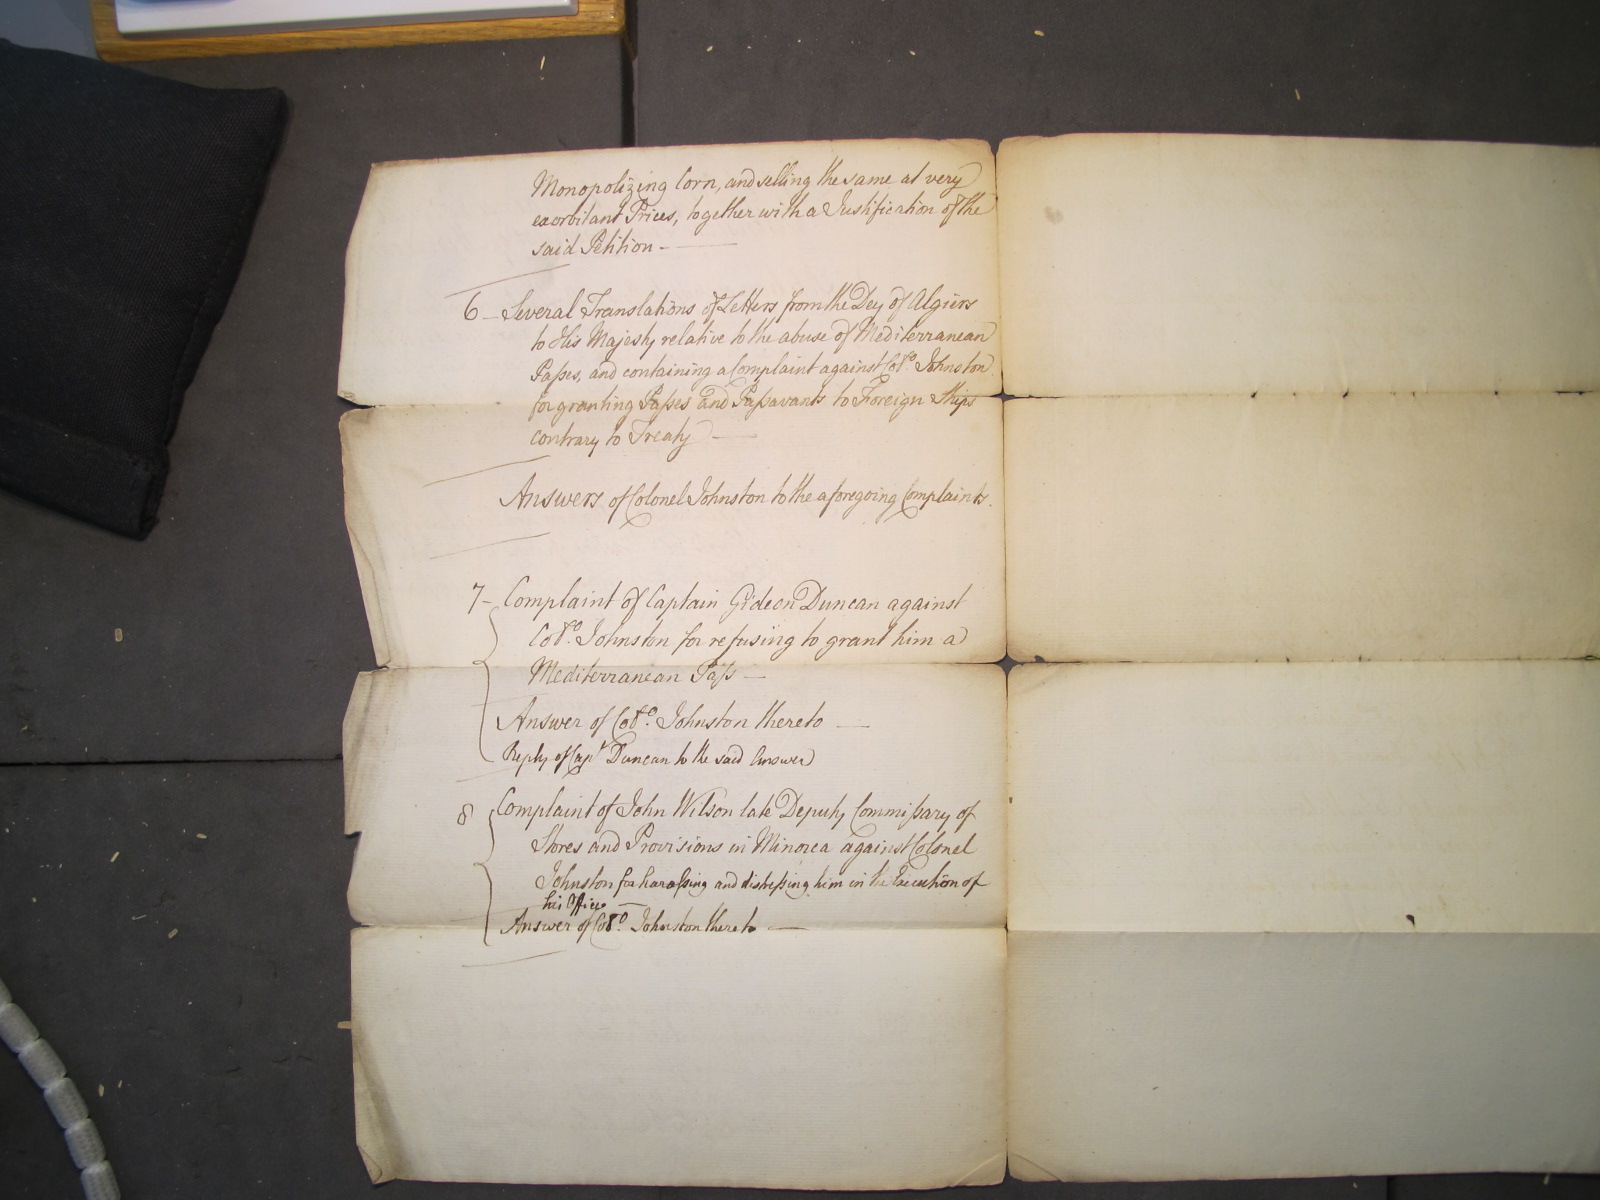 Monopolizing Corn, and selling the same at very
exorbitant Prices, together with a Justification of the
said Petition -
6 - Several Translations of Letters from the Dey of Algiers
to His Majesty relative to the abuse of Mediterranean
Passes, and containing a Complaint against Col.º Johnston
for granting Passes and Passavants to Foreign Ships
contrary to Treaty —
Answers of Colonel Johnston to the aforegoing Complaints.
7 - Complaint of Captain Gideon Duncan against
Col.º Johnston for refusing to grant him a
Mediterranean Pass —
Answer of Col.º Johnston thereto —
Reply of Capt Duncan to the said Answer
8 Complaint of John Wilson late Deputy Commissary of
Stores and Provisions in Minorca against Colonel
Johnston for harassing and distressing him in the Execution of
his Office —
Answer of Col.º Johnston thereto —